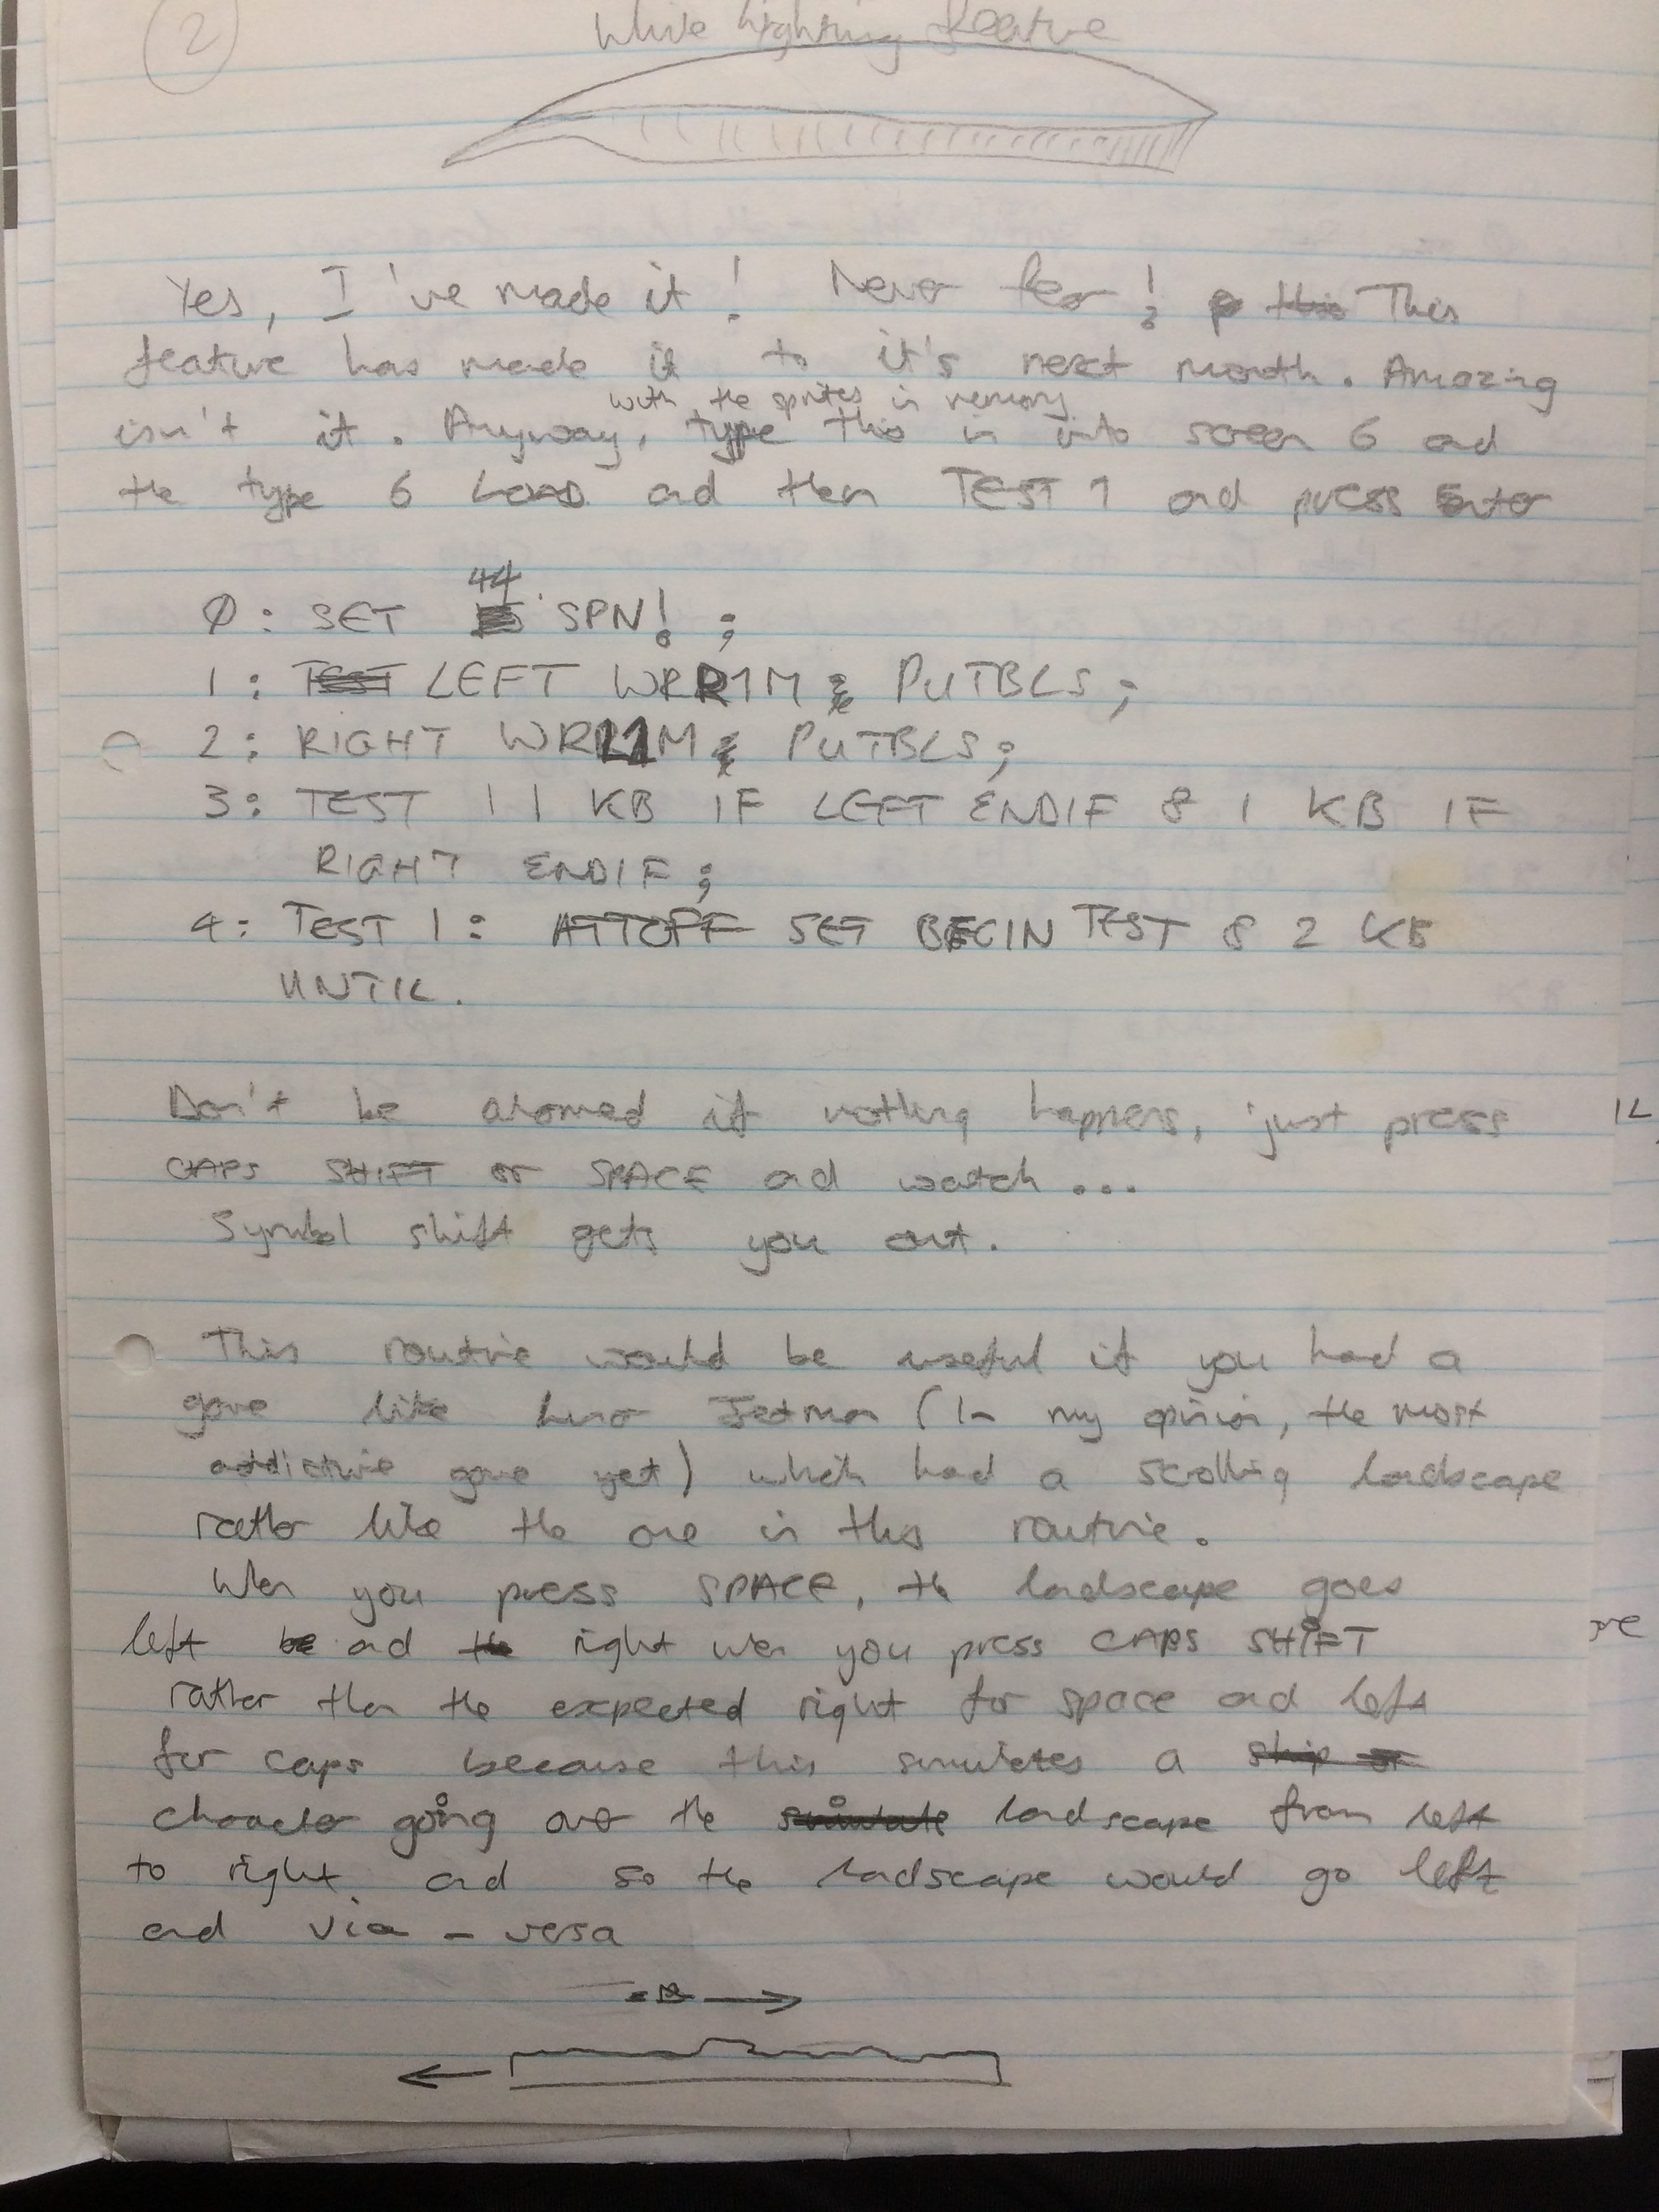 2
White lightning feature
Yes, I've made it! Never fear! This
feature has made it to it's next month. Amazing
with the sprites in memory
isn't it. Anyway, type this in into screen 6 and
the type 6 LOAD and then TEST 1 and press Enter
44
0: SET SPN! ;
1: TEST LEFT WRR1M & PUTBLS;
2: RIGHT WRL1M & PUTBLS;
3: TEST 1 1 KB IF LEFT ENDIF 8 1 KB IF
RIGHT ENDIF;
4: TEST 1: ATTOFF SET BEGIN TEST 8 2 KB
UNTIL.
Don't be alarmed if nothing happens, just press
CAPS SHIFT or SPACE and watch...
Symbol shift gets you out.
This routine would be useful if you had a
game like Lunar Jetman (In my opinion, the most
addictive game yet) which had a scrolling landscape
rather like the one in this routine.
When you press SPACE, the landscape goes
left and the right wen you press CAPS SHIFT
rather then the expected right for space and left
for caps because this simulates a ship or
character going over the simulate landscape from left
to right. and so the landscape would go left
and via - versa